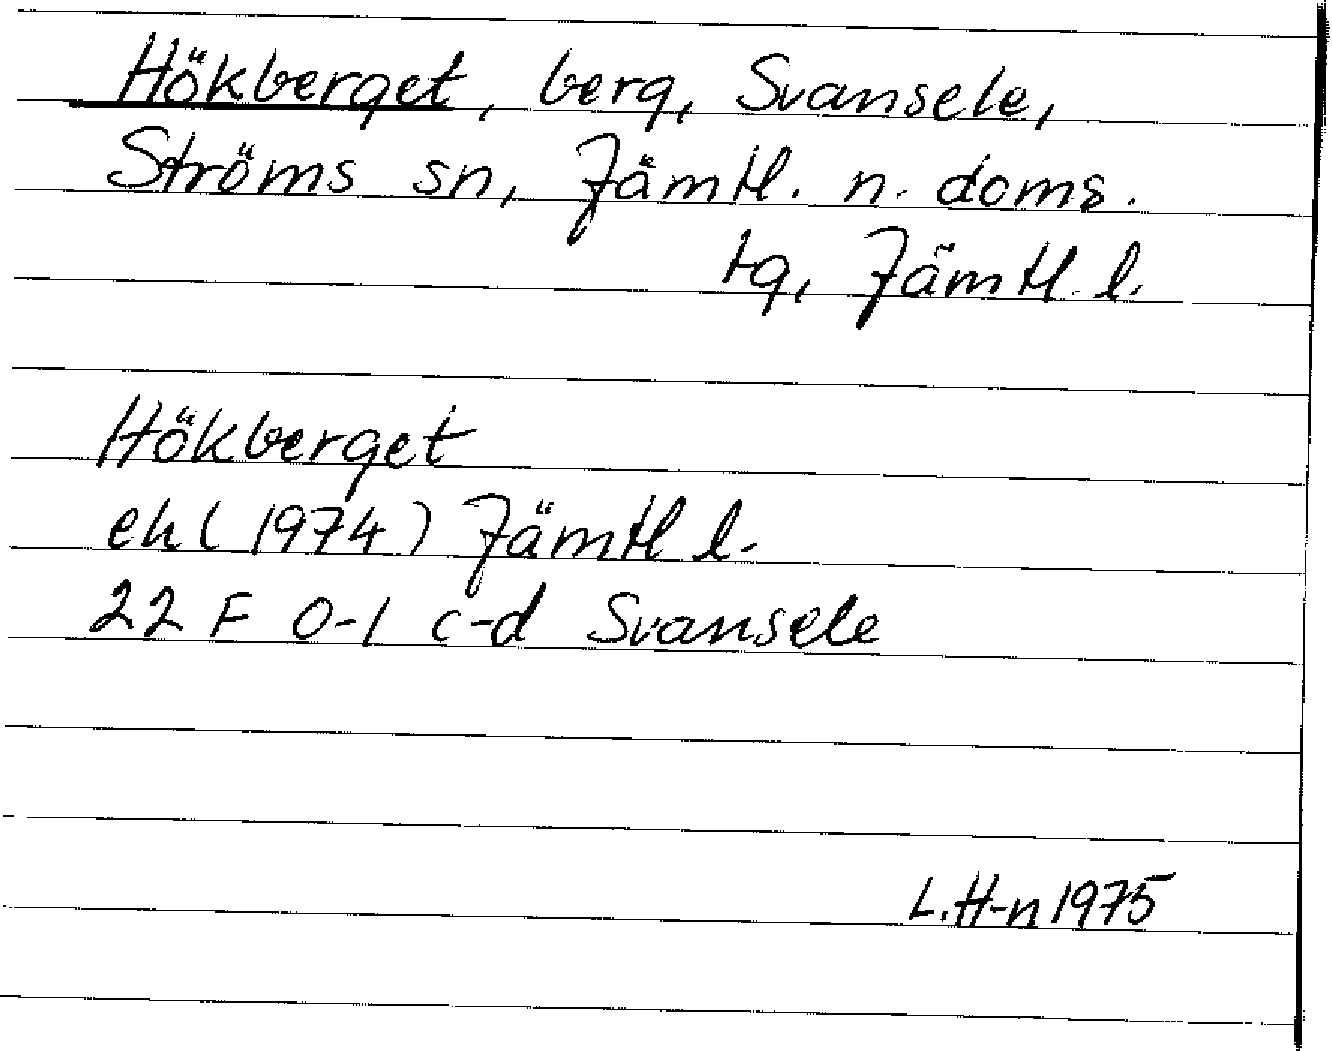 Hökberget, berg, Svansele,
Ströms sn, Jämtl. n. doms.
tg, Jämtl. l.
Hökberget
ek (1974) Jämtl l.
22 F 0-1 c-d Svansele
L.H-n 1975